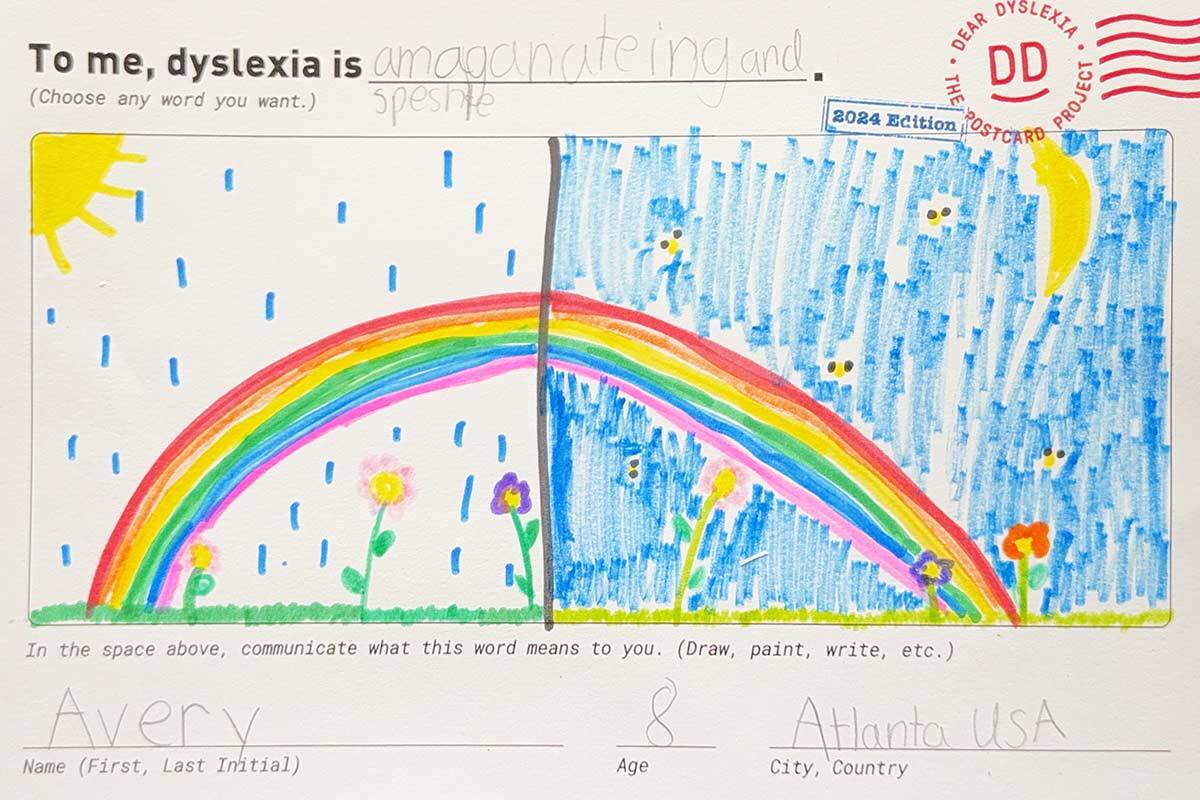 To me, dyslexia is amaganateing and.
(Choose any word you want.) speshle
DEAR DYSLEXIA • THE POSTCARD PROJECT •
DD
2024 Edition
In the space above, communicate what this word means to you. (Draw, paint, write, etc.)
Avery 8 Atlanta USA
Name (First, Last Initial) Age City, Country